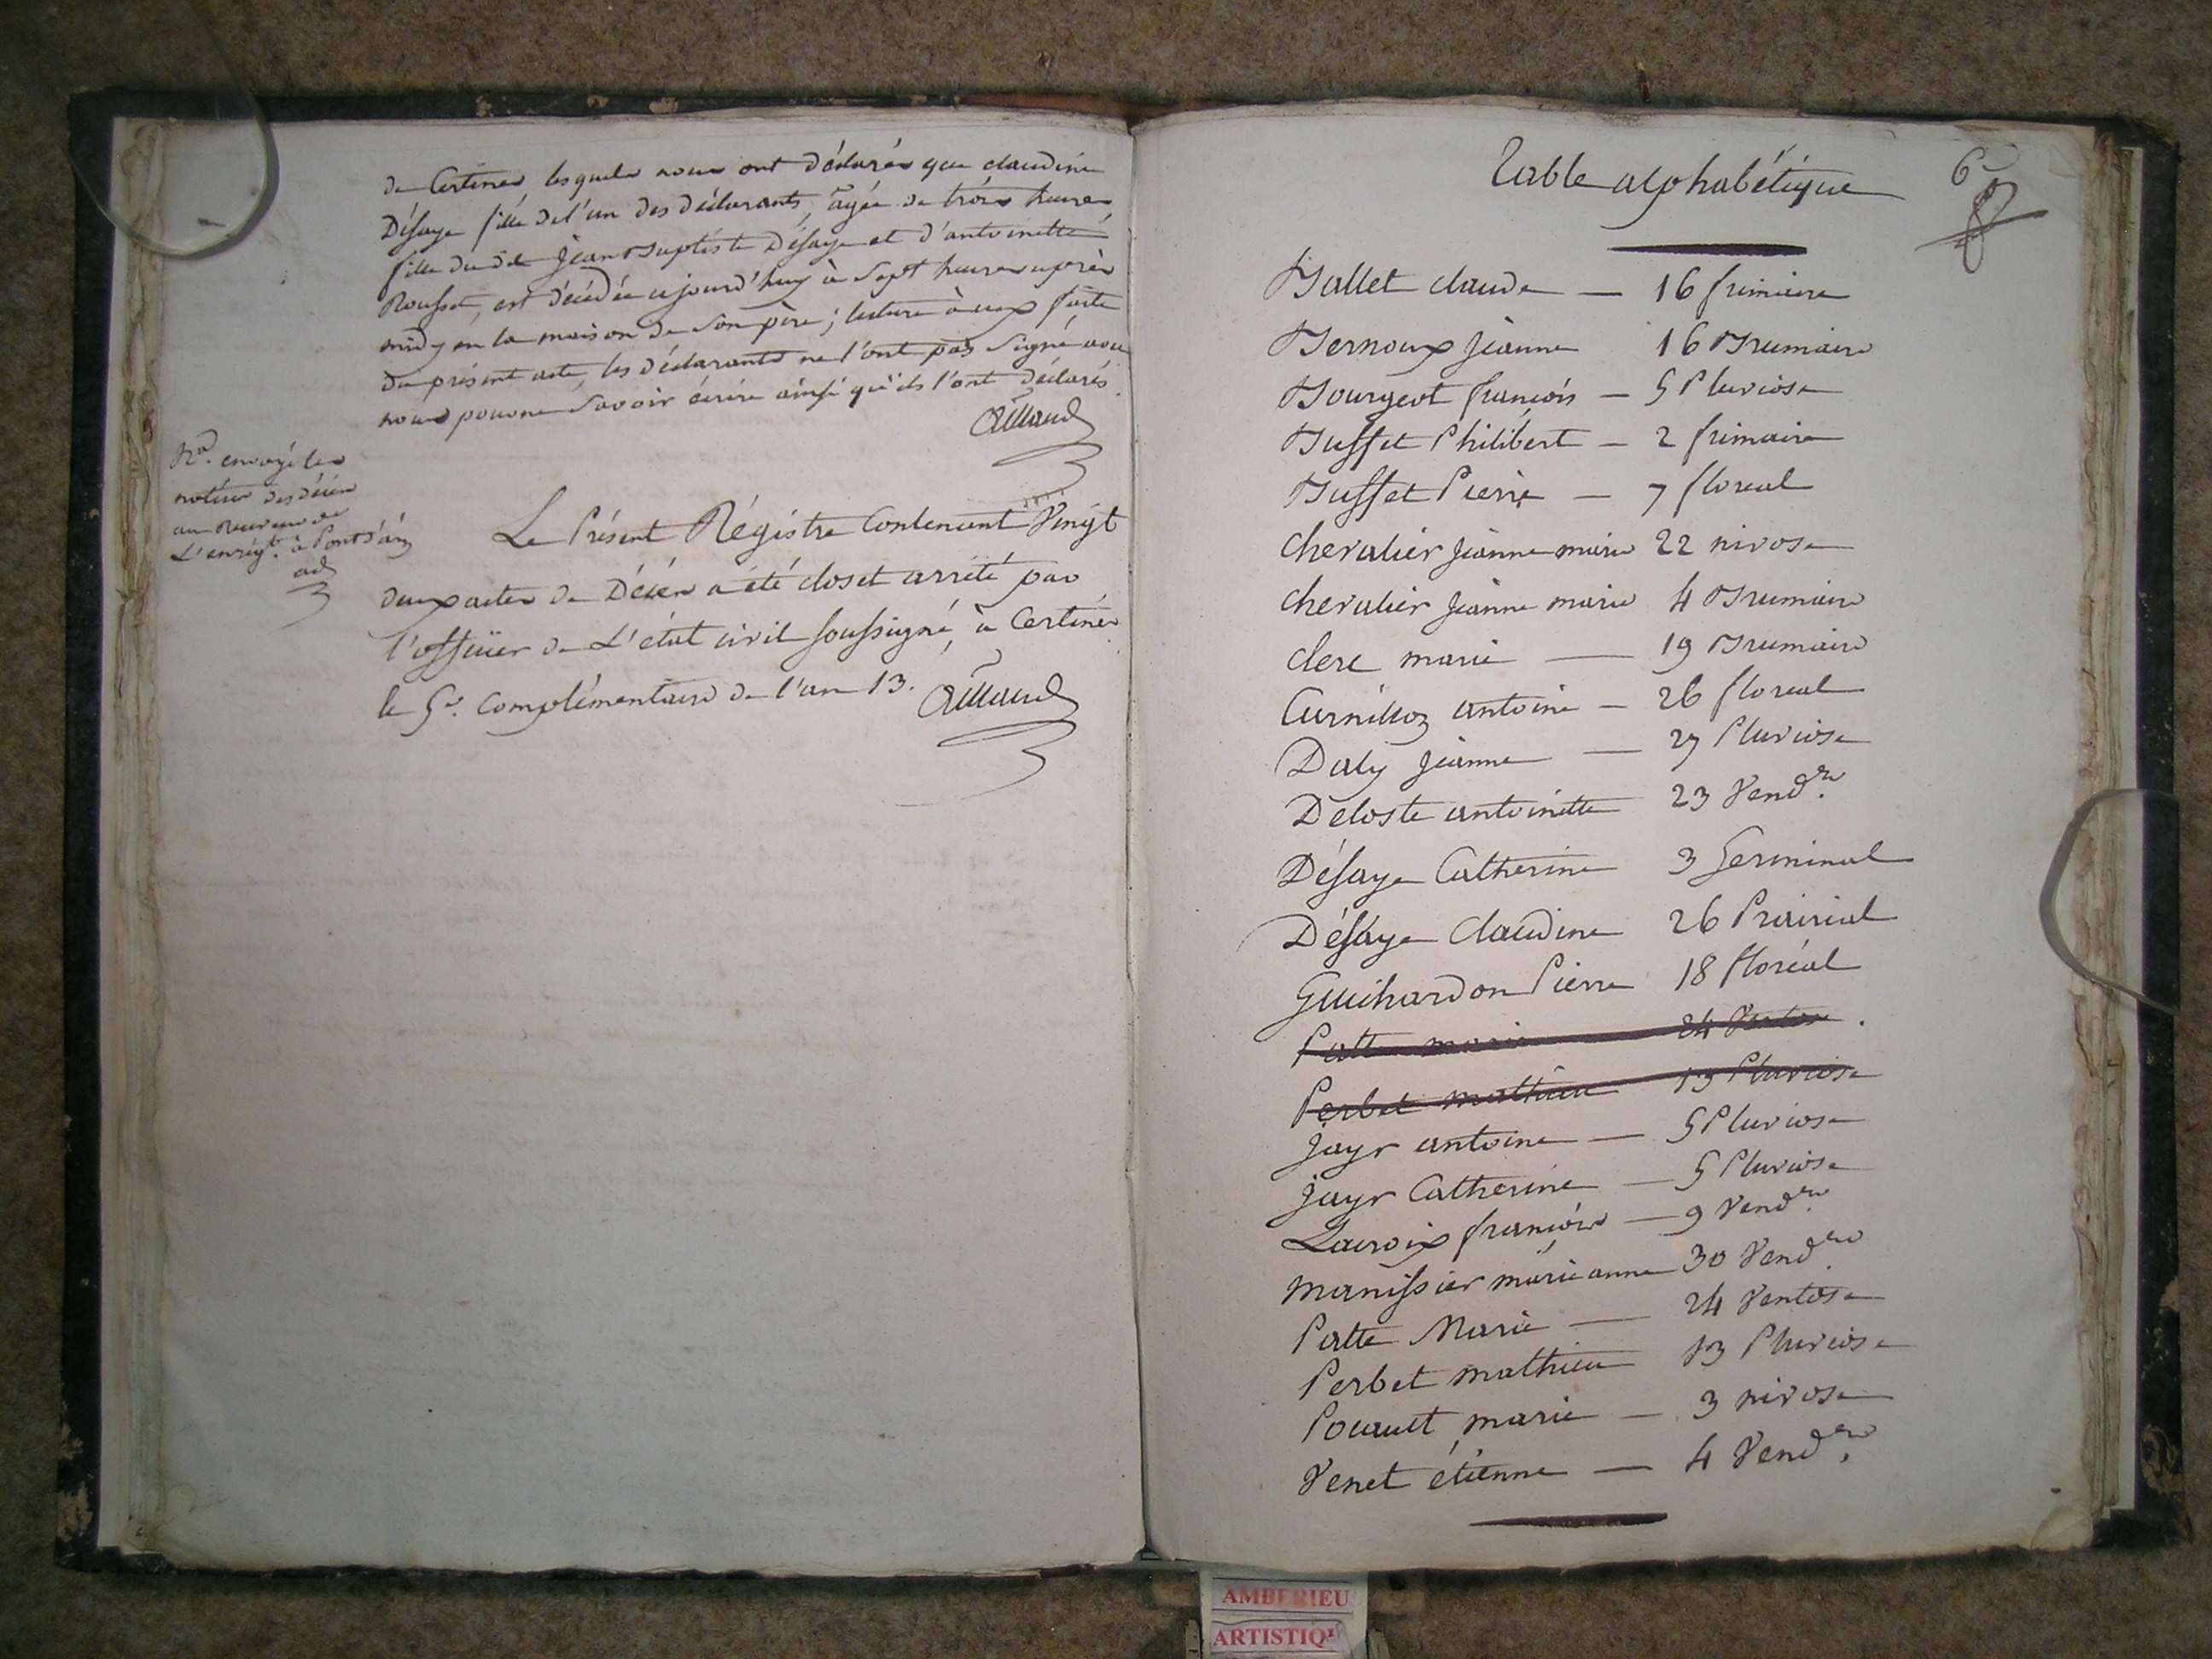 de Certines, lesquels nous ont déclarés que claudine
Désaye fille de l'un des déclarants, âgée de trois heures
fille du dt Jean Baptiste Désaye et d'antoinette
Rousset, est décédée cejourd'huy à Sept heures après
midy en la maison de Son père; lecture à eux faite
du présent acte, les déclarants ne l'ont pas Signé avec
nous pour ne Savoir écrire ainsi qu'ils l'ont déclarés
Nа. envoyé les
notices des décès
au Receveur de
L'enregt. à Pont d'ain
Le Présent Régistre Contenant Vingt
deux actes de Décès a été clos et arrêté par
l'officier de L'état civil soussigné, à Certines
le 5e. Complémentaire de l'an 13.
Table alphabétique
6e
Ballet claude — 16 frimaire
Bernoux jeanne 16 Brumaire
Bourgeot françois — 5 Pluviose
Buffet Philibert — 2 frimaire
Buffet Pierre — 7 floreal
chevalier jeanne marie 22 nivose
chevalier jeanne marie 4 Brumaire
clerc marie — 19 Brumaire
Curnilloz antoine — 26 floreal
Daly jeanne — 27 Pluviose
Deloste antoinette 23 Vendre.
Désaye Catherine 3 Germinal
Désaye Claudine 26 Prairial
Guichardon Pierre 18 floréal
Patte marie 24 Ventose.
Perbet mathieu 13 Pluviose
jayr antoine — 5 Pluviose
jayr Catherine — 5 Pluviose
Lacroix françois — 9 Vendre.
manissier marie anne 30 Vendre.
Patte Marie — 24 Ventose
Perbet mathieu 13 Pluviose
Pocault marie — 3 nivose
Venet étienne — 4 Vendre.
AMBERIEU
ARTISTIQU